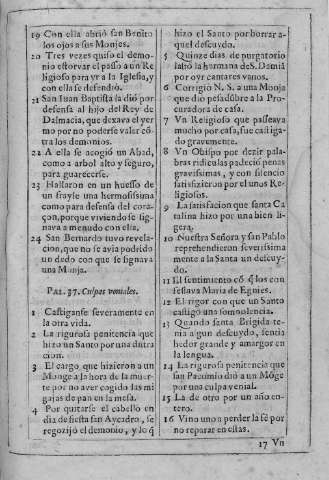 19 Con ella abriò san Benito
los ojos a sus Monjes.
20 Tres vezes quiso el demo-
nio estorvar el passo a un Re
ligioso para yr a la Iglesia, y
con ella se defendiò.
21 San Iuan Baptista la diò por
defensa al hijo del Rey de
Dalmacia, que dexava el yer
mo por no poderse valer cō
tra los demonios.
22 A ella se acogiò un Abad,
como a arbol alto y seguro,
para guarecerse.
23 Hallaron en un huesso de
un frayle una hermosissima
como para defensa del cora-
çon, porque viviendo se sig-
nava a menudo con ella.
24 San Bernardo tuvo revela-
cion, que no se avia podrido
un dedo con que se signava
una Monja.
Pal. 37. Culpas veniales.
1 Castiganse severamente en
la otra vida.
2 La rigurosa penitencia que
hizo un Santo por una dutra
cion.
3 El cargo, que hizieron a un
Monge a la hora de la muer-
te por no aver cogido las mi
gajas de pan en la mesa.
4 Por quitarse el cabello en
dia de fiesta san Aycadro, se
regozijò el demonio, y lo q̃
hizo el Santo por borrar a-
quel descuydo.
5 Quinze dias de purgatorio
labò la hermana de S. Damiā
por oyr cantares vanos.
6 Corrigiò N. S. a una Monja
que diò pesadūbre a la Pro-
curadora de casa.
7 Vn Religioso que passeava
mucho por casa, fue castiga-
do gravemente.
8 Vn Obispo por dezir pala-
bras ridiculas padeciò penas
gravissimas, y con silencio
satisfizieron por el unos Re-
ligiosos.
9 La satisfacion que santa Ca
talina hizo por una bien li-
gera.
10 Nuestra Señora y san Pablo
reprehendieron severissima
mente a la Santa un descuy-
do.
11 El sentimiento cō q̃ los con
fessava Maria de Egnies.
12 El rigor con que un Santo
castigò una somnolencia.
13 Quando santa Brigida te-
nia algun descuydo, sentia
hedor grande y amargor en
la lengua.
14 La rigurosa penitencia que
san Pacomio diò a un Mōge
por una culpa venial.
15 La de otro por un año en-
tero.
16 Vino uno a perder la fè por
no reparar en estas.
17 Vn